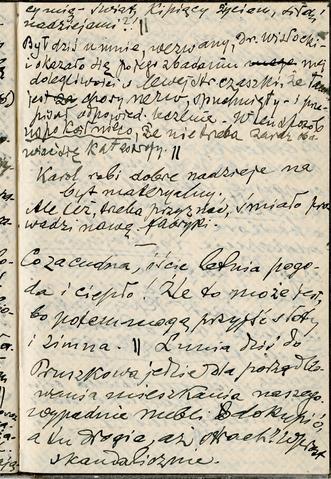 cynią świat, kipiący życiem, siłą,
nadziejami? ||
Był dziś u mnie, wezwany, Dr. Wisłocki
i okazało się po jego zbadaniu mej
dolegliwości z lewej str. czaszki, że tam
jest chory nerw, spuchnięty i prze-
pisał odpowied. leczenie. W
nie trzeba zaraz oba-
wiać się katastrofy. ||
Karol robi dobre nadzieje na
byt materyalny.
Ale też, trzeba przyznać, śmiało pro-
wadzi nową fabrykę.
Co za cudna, iście letnia pogo-
da i ciepło! Źle to może jest,
bo potem mogą przyjść słoty
i zimna. || Lunia dziś do
Pruszkowa jedzie dla porządko-
wania mieszkania naszego.
wypadnie mebli dokupić,
a tu drogie, aż strach!
skandalicznie.